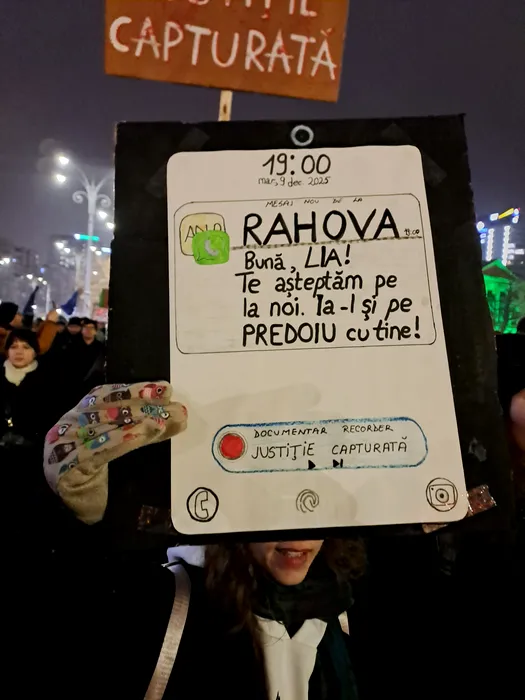 JUSTIȚIE
CAPTURATĂ
19:00
mar, 9 dec. 2025
MESAJ NOU DE LA
RAHOVA
Bună, LIA!
Te așteptăm pe
la noi. Ia-l și pe
PREDOIU cu tine!
DOCUMENTAR RECORDER
JUSTIȚIE CAPTURATĂ